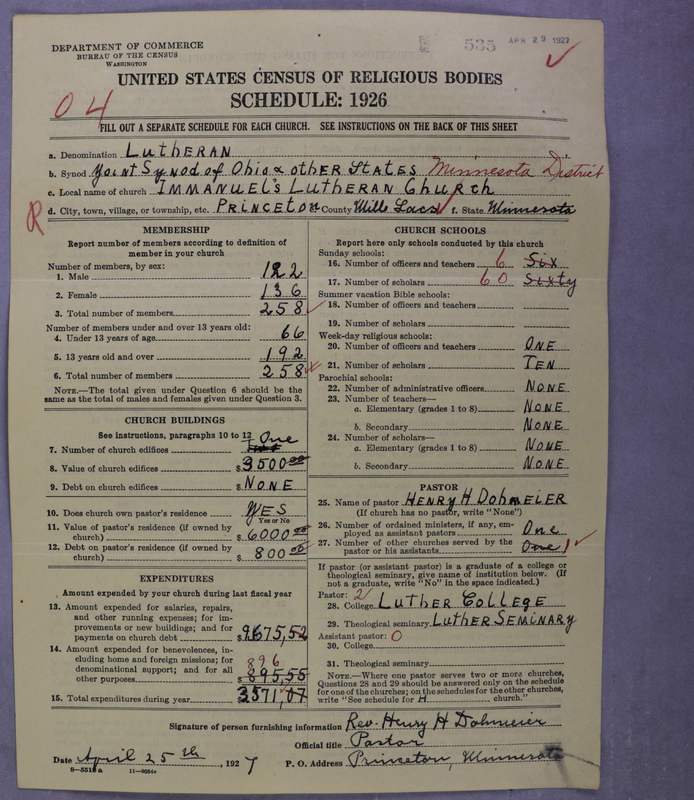 535 APR 29 1927
DEPARTMENT OF COMMERCE
BUREAU OF THE CENSUS
WASHINGTON
UNITED STATES CENSUS OF RELIGIOUS BODIES
SCHEDULE: 1926
04
FILL OUT A SEPARATE SCHEDULE FOR EACH CHURCH. SEE INSTRUCTIONS ON THE BACK OF THIS SHEET
a. Denomination LUTHERAN
b. Synod Joint Synod of Ohio & other STATES Minnesota District
c. Local name of church IMMANUEL'S LUTHERAN CHURCH
R d. City, town, village, or township, etc. PRINCETON County Mille Lacs f. State Minnesota
MEMBERSHIP
Report number of members according to definition of
member in your church
Number of members, by sex:
1. Male 122
2. Female 136
3. Total number of members 258
Number of members under and over 13 years old:
4. Under 13 years of age 66
5. 13 years old and over 192
6. Total number of members 258
NOTE.—The total given under Question 6 should be the
same as the total of males and females given under Question 3.
CHURCH BUILDINGS
See instructions, paragraphs 10 to 12
7. Number of church edifices One
8. Value of church edifices $3500.00
9. Debt on church edifices $NONE
10. Does church own pastor's residence YES
Yes or No
11. Value of pastor's residence (if owned by
church) $6000.00
12. Debt on pastor's residence (if owned by
church) $800.00
EXPENDITURES
Amount expended by your church during last fiscal year
13. Amount expended for salaries, repairs,
and other running expenses; for im-
provements or new buildings; and for
payments on church debt $2675,52
14. Amount expended for benevolences, in-
cluding home and foreign missions; for
denominational support; and for all 896
other purposes $895,55
15. Total expenditures during year 3571,07
CHURCH SCHOOLS
Report here only schools conducted by this church
Sunday schools:
16. Number of officers and teachers 6 Six
17. Number of scholars 60 Sixty
Summer vacation Bible schools:
18. Number of officers and teachers
19. Number of scholars
Week-day religious schools:
20. Number of officers and teachers ONE
21. Number of scholars TEN
Parochial schools:
22. Number of administrative officers NONE
23. Number of teachers—
a. Elementary (grades 1 to 8) NONE
b. Secondary NONE
24. Number of scholars—
a. Elementary (grades 1 to 8) NONE
b. Secondary NONE
PASTOR
25. Name of pastor HENRY H DOHMEIER
(If church has no pastor, write "None")
26. Number of ordained ministers, if any, em-
ployed as assistant pastors One
27. Number of other churches served by the
pastor or his assistants One 1
If pastor (or assistant pastor) is a graduate of a college or
theological seminary, give name of institution below. (If
not a graduate, write "No" in the space indicated.)
Pastor: 2
28. College LUTHER COLLEGE
29. Theological seminary LUTHER SEMINARY
Assistant pastor: 0
30. College
31. Theological seminary
NOTE.—Where one pastor serves two or more churches,
Questions 28 and 29 should be answered only on the schedule
for one of the churches; on the schedules for the other churches,
write "See schedule for H church."
Signature of person furnishing information Rev. Henry H Dohmeier
Official title Pastor
Date April 25th, 1927 P. O. Address Princeton, Minnesota
8-551a 11-9064